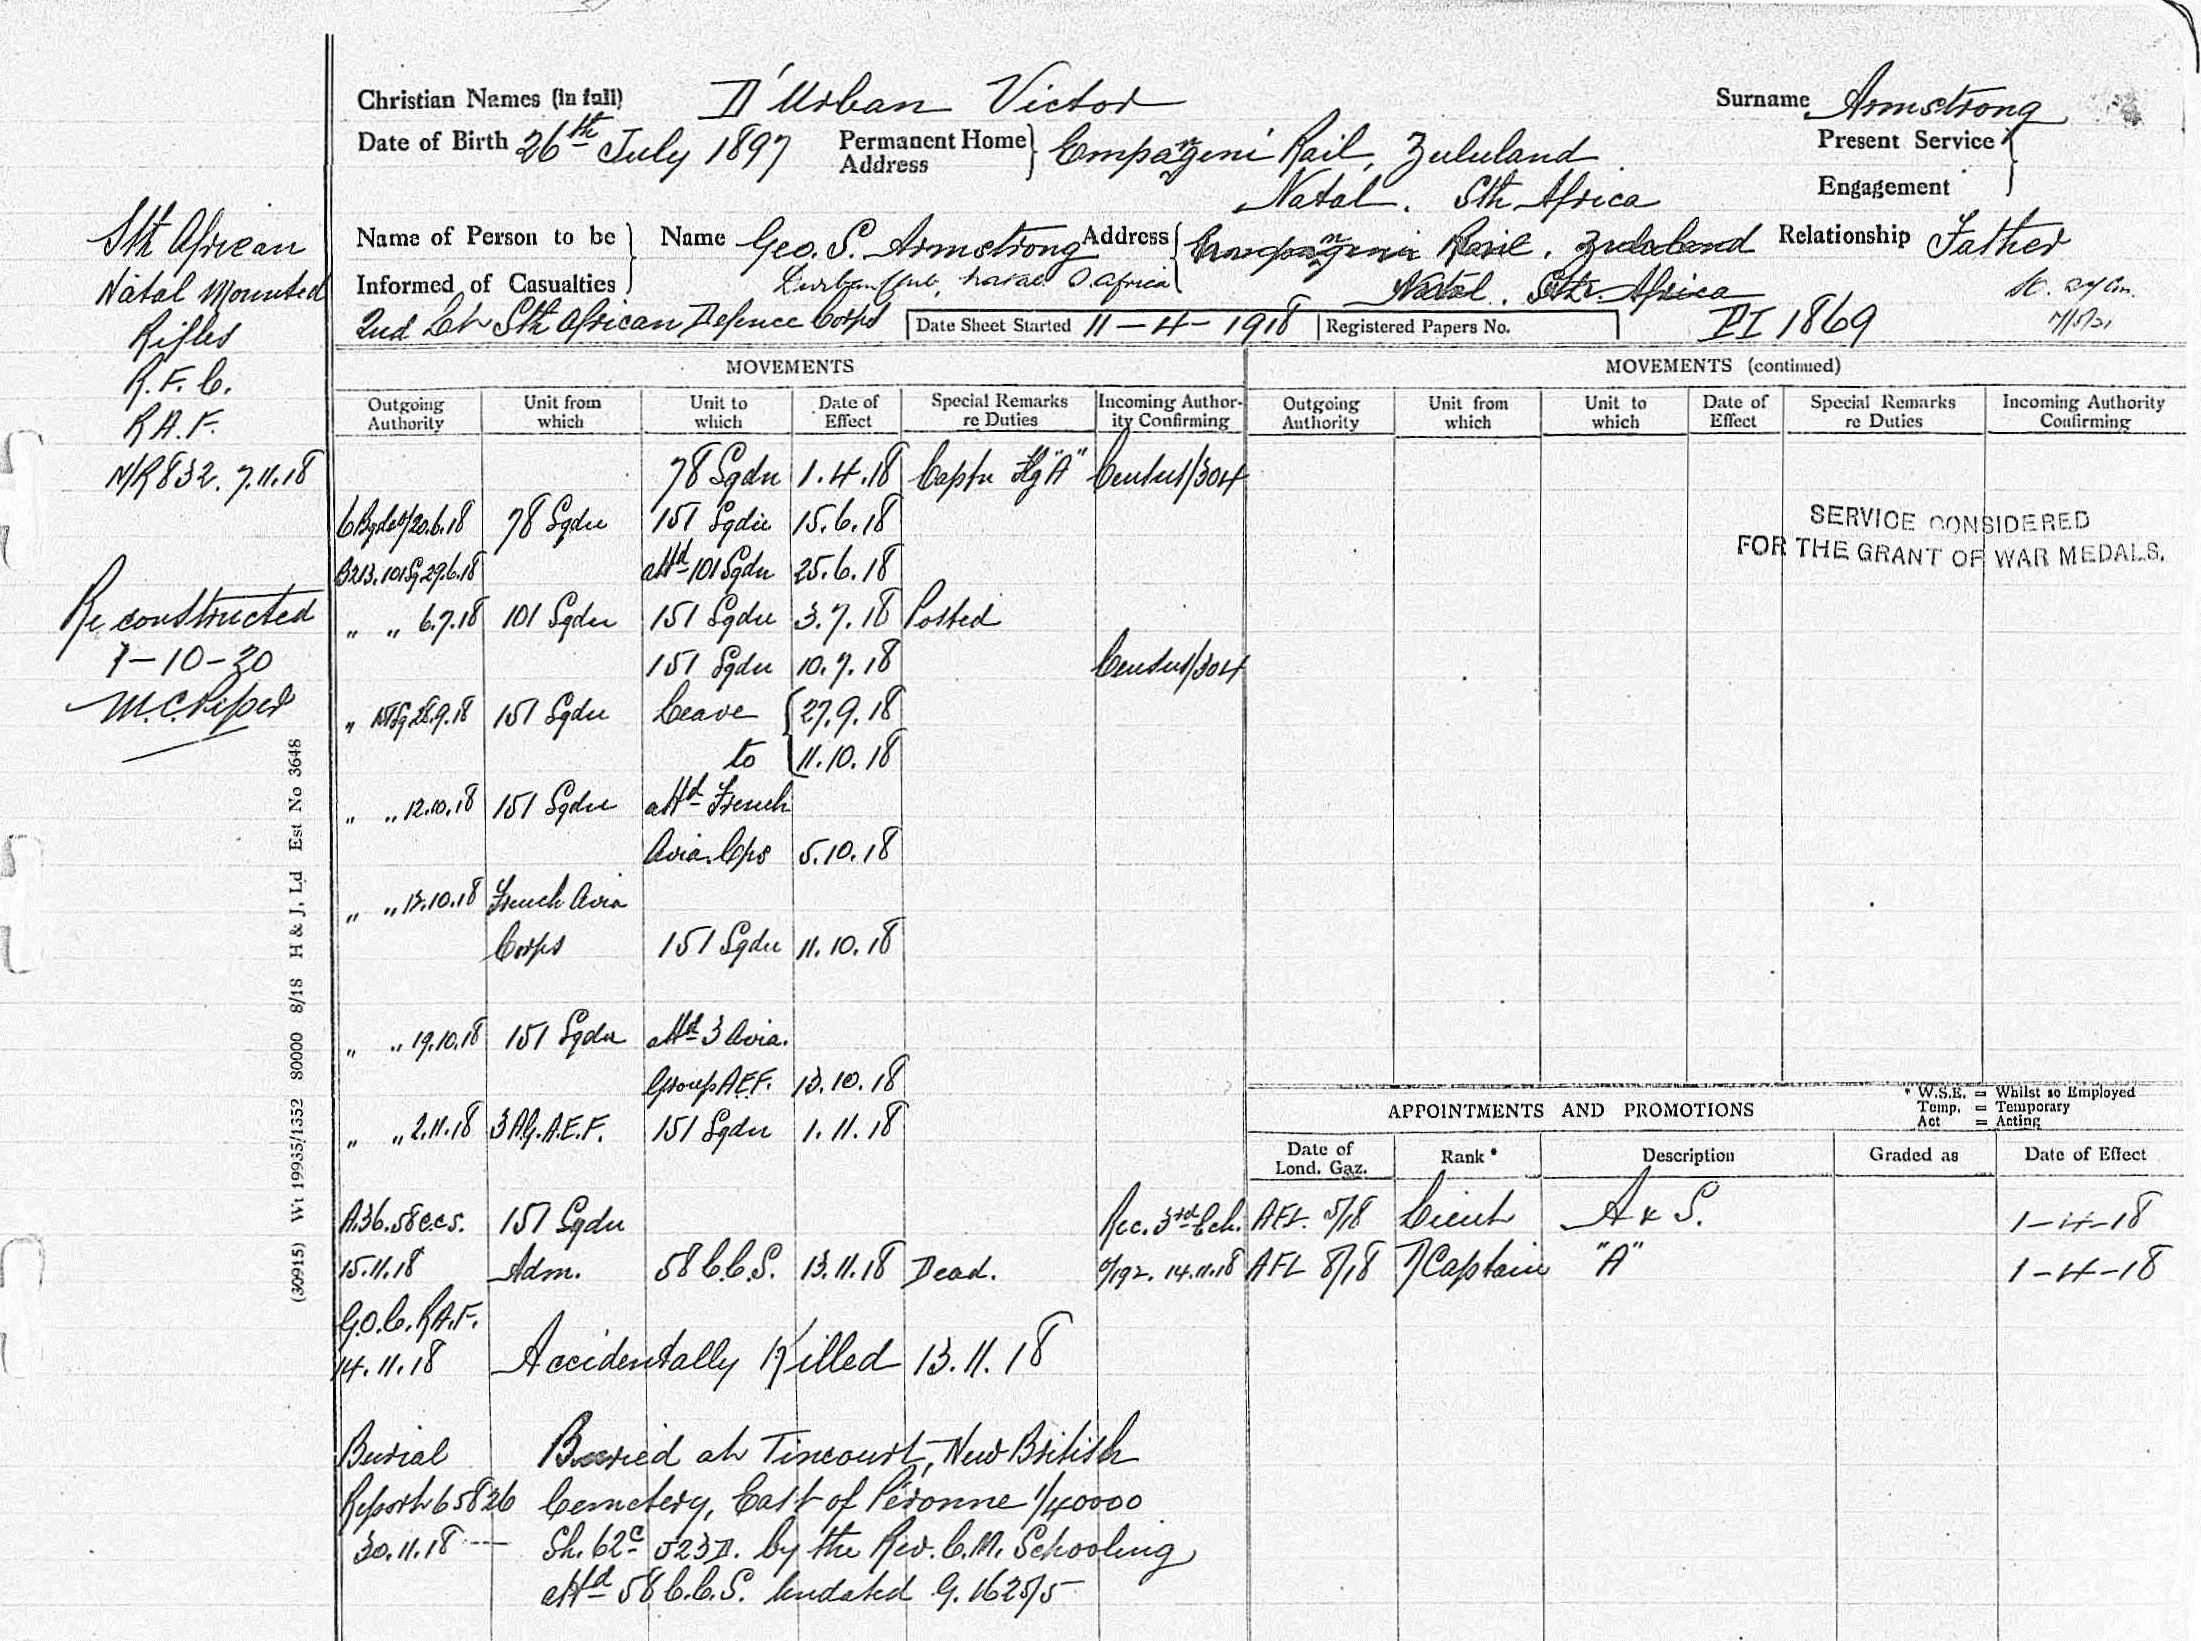 Christian Names (in full) D'Urban Victor Surname Armstrong
Date of Birth 26th July 1897 Permanent Home Address } Empangeni Rail, Zululand Present Service
Natal. Sth Africa Engagement
Sth African
Natal Mounted
Rifles
R.F.C.
R.A.F.
N/R 832. 7.11.18
Reconstructed
7-10-20
M.C. Piper
Name of Person to be Informed of Casualties } Name Geo. S. Armstrong Address { Empangeni Rail, Zululand Relationship Father
Durban Club, Natal S. Africa Natal. Sth. Africa
2nd Lt Sth African Defence Corps Date Sheet Started 11-4-1918 Registered Papers No. PI 1869
MOVEMENTS
Outgoing Authority Unit from which Unit to which Date of Effect Special Remarks re Duties Incoming Authority Confirming
78 Sqdn 1.4.18 Captn Flg "A" Census/304
6 Bgde 20.6.18 78 Sqdn 151 Sqdn 15.6.18
B213. 101 Sq. 29.6.18 attd 101 Sqdn 25.6.18
" " 6.7.18 101 Sqdn 151 Sqdn 3.7.18 Posted
151 Sqdn 10.7.18 Census/304
" 151 Sq. 28.9.18 151 Sqdn Leave { 27.9.18
to { 11.10.18
" " 12.10.18 151 Sqdn attd French
Avia. Cps 5.10.18
" " 12.10.18 French Avia
Corps 151 Sqdn 11.10.18
" " 19.10.18 151 Sqdn attd 3 Avia.
Group A.E.F. 13.10.18
" " 2.11.18 3 A.G. A.E.F. 151 Sqdn 1.11.18
A.36. 58 C.C.S. 151 Sqdn Rec. 3rd Ech.
15.11.18 Adm. 58 C.C.S. 13.11.18 Dead. 14.11.18
G.O.C. R.A.F.
14.11.18 Accidentally Killed 13.11.18
Burial Buried at Tincourt, New British
Report 65826 Cemetery, East of Péronne 1/40000
30.11.18 --- Sh. 62c J23D. by the Rev. C.M. Schooling
attd 58 C.C.S. undated G. 1625/5
MOVEMENTS (continued)
Outgoing Authority Unit from which Unit to which Date of Effect Special Remarks re Duties Incoming Authority Confirming
SERVICE CONSIDERED
FOR THE GRANT OF WAR MEDALS.
* W.S.E. = Whilst so Employed
Temp. = Temporary
Act = Acting
APPOINTMENTS AND PROMOTIONS
Date of Lond. Gaz. Rank * Description Graded as Date of Effect
AFL. 5/18 Lieut A & S. 1-4-18
AFL 8/18 T/Captain "A" 1-4-18
(30915) Wt 19935/1352 80000 8/18 H & J. Ld Est No 3648